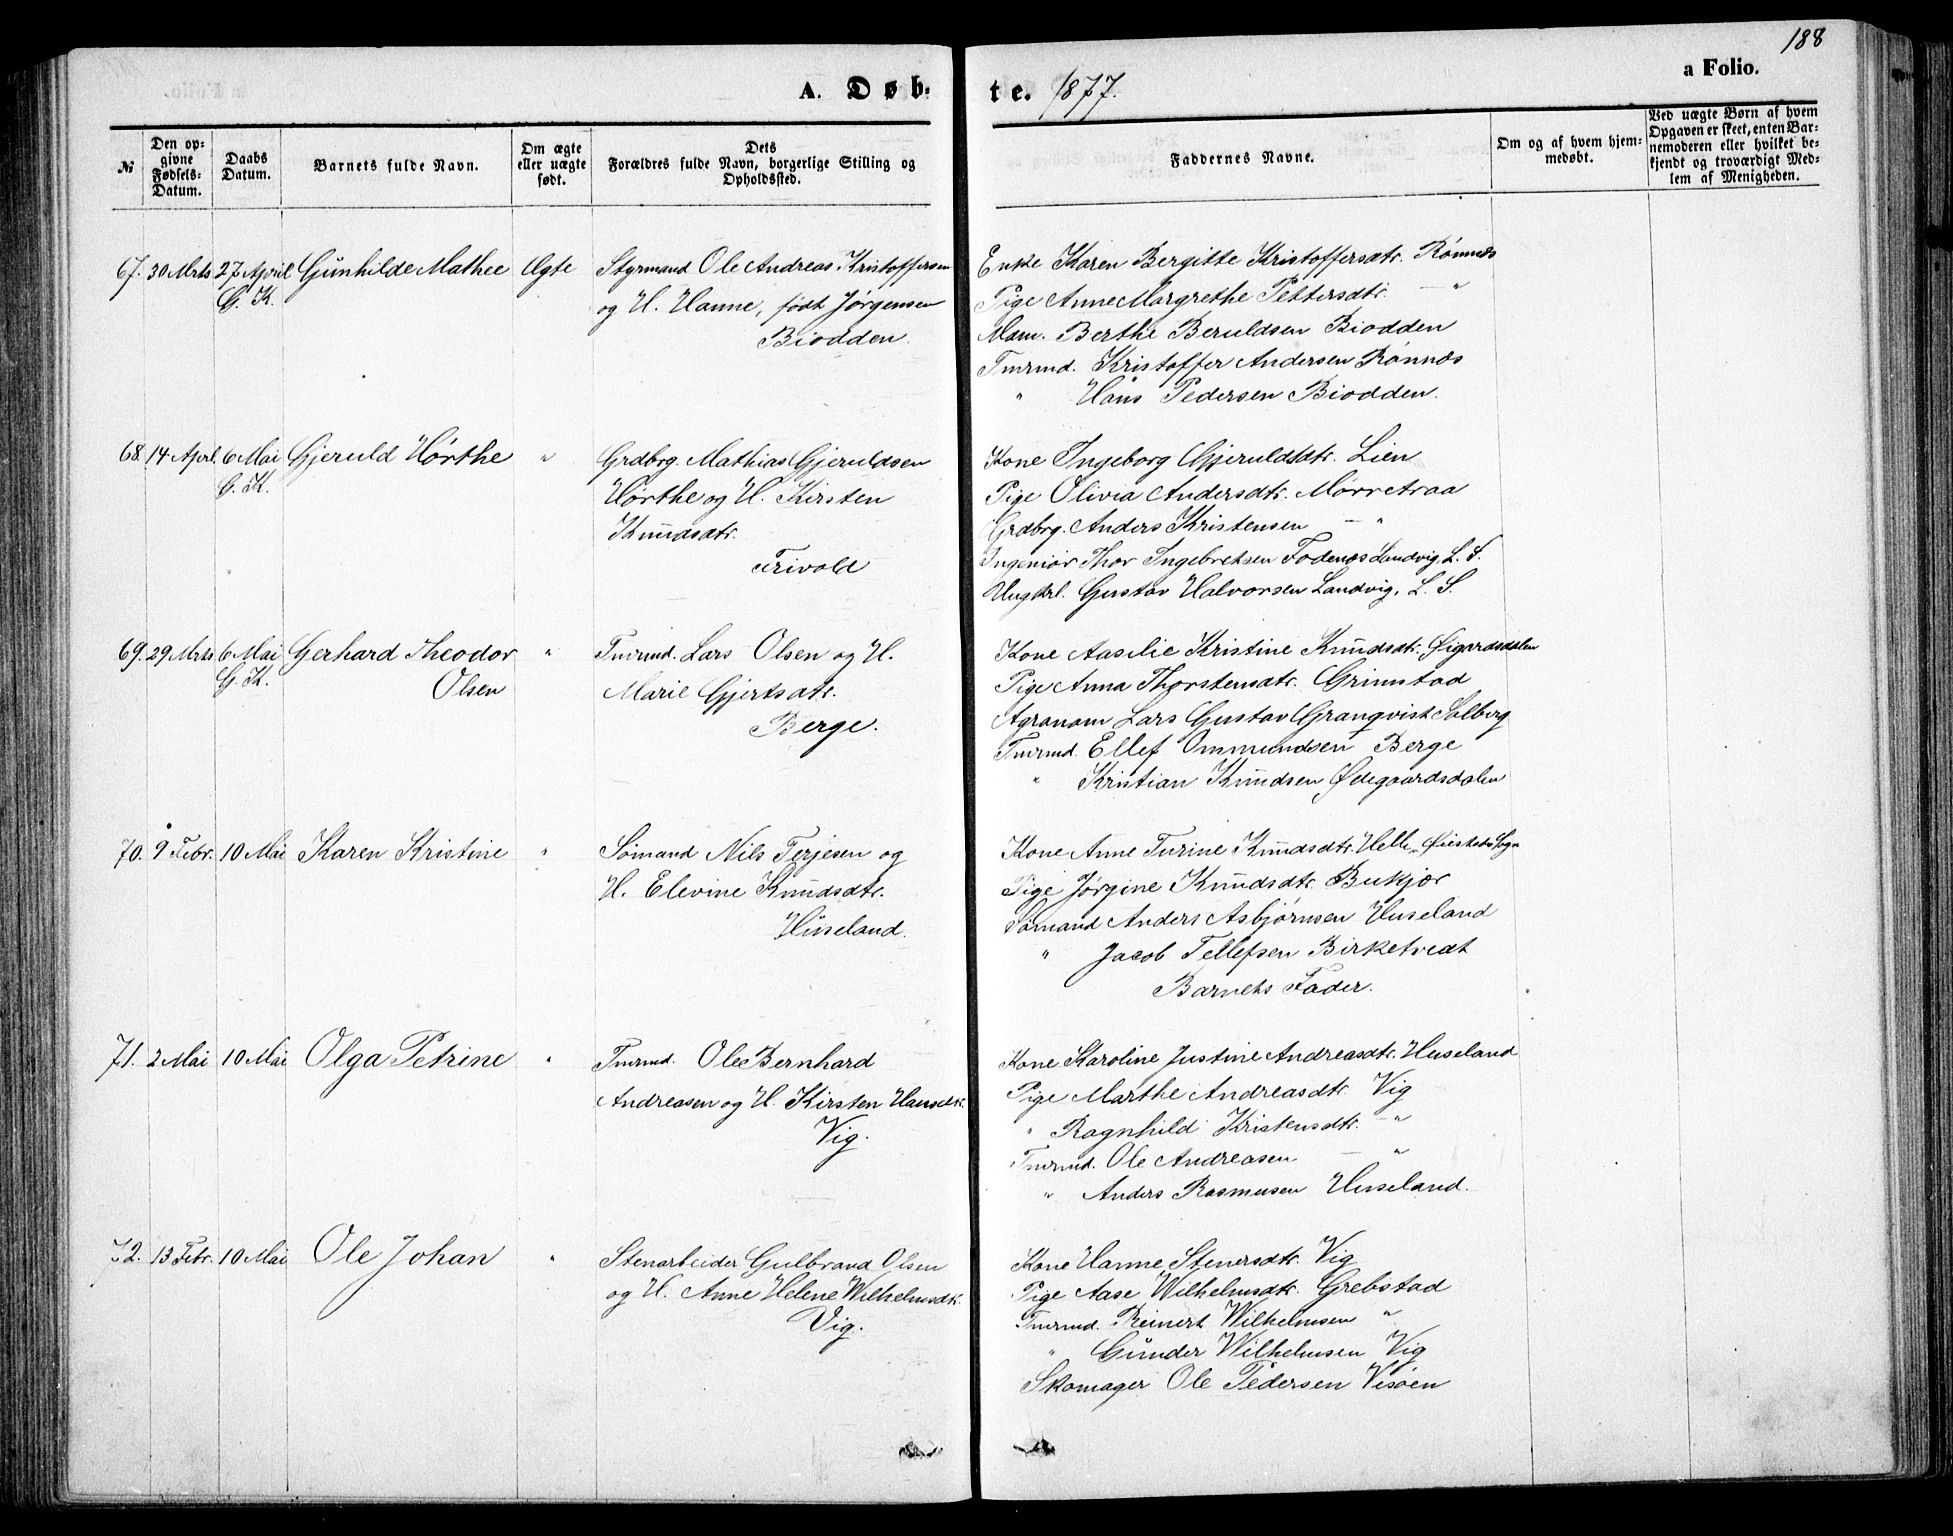 188
A. Døb-
te. 1877.
a Folio.
№
Den op-
givne
Fødsels-
Datum.
Daabs
Datum.
Barnets fulde Navn.
Om ægte
eller uægte
født.
Dets
Forældres fulde Navn, borgerlige Stilling og
Opholdssted.
Faddernes Navne.
Om og af hvem hjem-
medøbt.
Ved uægte Børn af hvem
Opgaven er skeet, enten Bar-
nemoderen eller hvilket be-
kjendt og troværdigt Med-
lem af Menigheden.
67. 30 Mrts 27 April Gunhilde Mathee Ægte Styrmand Ole Andreas Kristoffersen
G. K. og H. Hanne, født Jørgensen
Biodden.
Enke Karen Bergitte Kristoffersdtr. Rønnes
Pige Anne Margrethe Pettersdtr. — "
Mam. Berthe Beruldsen Biodden
Tmrmd. Kristoffer Andersen Rønnes
" Hans Pedersen Biodden.
68. 14 Aprl. 6 Mai Gjeruld Hørthe " Grdbrg. Mathias Gjeruldsen
G. K. Hørthe og H. Kirsten
Knudsdtr.
Trivold
Kone Ingeborg Gjeruldsdtr. Lien
Pige Olivia Andersdtr. Mørretraa
Grdbrg. Anders Kristensen — "
Ingeniør Thor Ingebretsen Fodenæs Landvig, L. S.
Ungkrl. Gustav Halvorsen Landvig, L. S.
69. 29 Mrts 6 Mai Gerhard Theodor " Tmrmd. Lars Olsen og H.
G. K. Olsen Marie Gjertsdtr.
Berge.
Kone Aaselie Kristine Knudsdtr. Øigardsdalen
Pige Anna Thorstensdtr. Grimstad
Agronom Lars Gustav Granqvist Solberg
Tmrmd. Ellef Ommundsen Berge
" Kristian Knudsen Ødegaardsdalen
70. 9 Febr. 10 Mai Karen Kristine " Sømand Nils Terjesen og
H. Elevine Knudsdtr.
Huseland.
Kone Anne Turine Knudsdtr. Helle, Øiestads Sogn
Pige Jørgine Knudsdtr. Bukjær
Sømand Anders Asbjørnsen Huseland
" Jacob Tellefsen Birketvedt
Barnets Fader.
71. 2 Mai 10 Mai Olga Petrine " Tmrmd. Ole Bernhard
Andreasen og H. Kirsten Hansdtr.
Vig.
Kone Karoline Justine Andreasdtr. Huseland
Pige Marthe Andreasdtr. Vig
" Ragnhild Kristensdtr. — "
Tmrmd. Ole Andreasen — "
" Anders Rasmusen Huseland.
72. 13 Febr. 10 Mai Ole Johan " Stenarbeider Gulbrand Olsen
og H. Anne Helene Wilhelmsdtr.
Vig.
Kone Hanne Stenersdtr. Vig
Pige Aase Wilhelmsdtr. Grebstad
Tmrmd. Reinert Wilhelmsen "
" Gunder Wilhelmsen Vig
Skomager Ole Pedersen Visøen